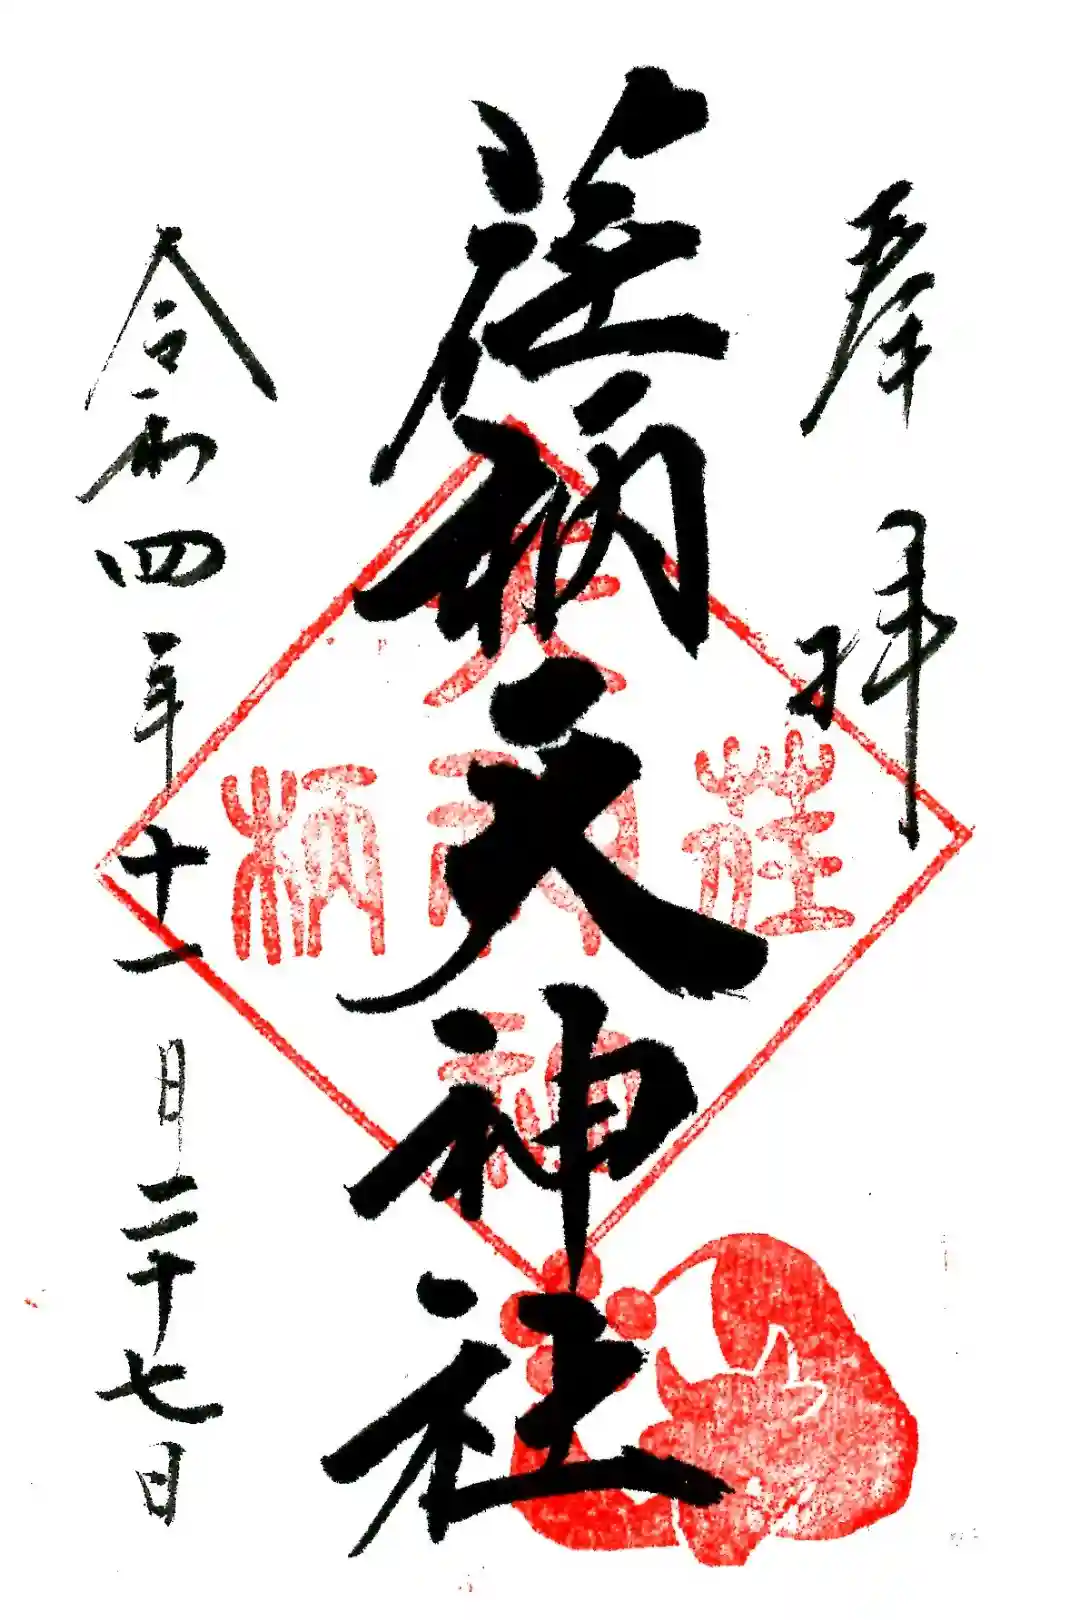 奉拝
荏柄天神社
令和四年十一月二十七日
天
荏神柄
神